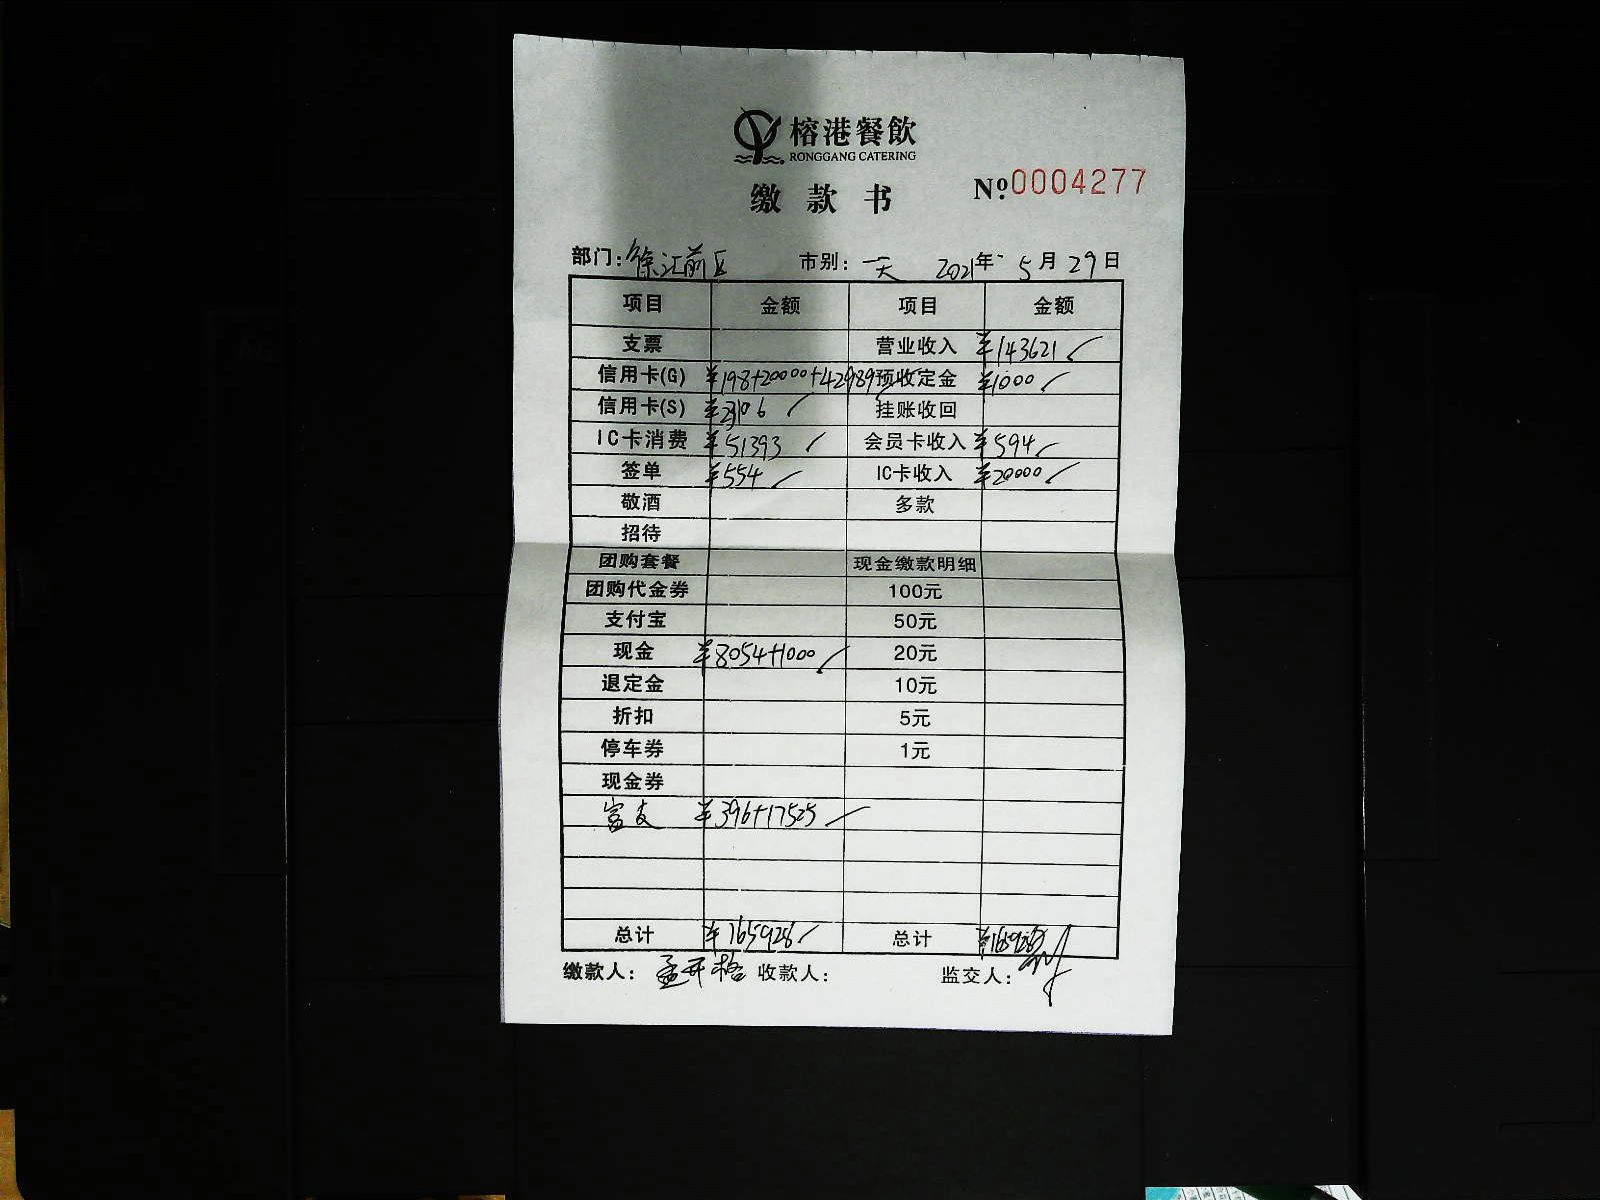 榕港餐飲
RONGGANG CATERING
缴款书 №0004277
部门：徐汇前区 市别：一天 2021年5月29日
项目 金额 项目 金额
支票 营业收入 ¥143621
信用卡(G) ¥198+20000+42989 预收定金 ¥1000
信用卡(S) ¥23106 挂账收回
IC卡消费 ¥51393 会员卡收入 ¥594
签单 ¥554 IC卡收入 ¥20000
敬酒 多款
招待
团购套餐 现金缴款明细
团购代金券 100元
支付宝 50元
现金 ¥8054+1000 20元
退定金 10元
折扣 5元
停车券 1元
现金券
富友 ¥396+17525
总计 ¥165928 总计
缴款人：孟开格 收款人： 监交人：